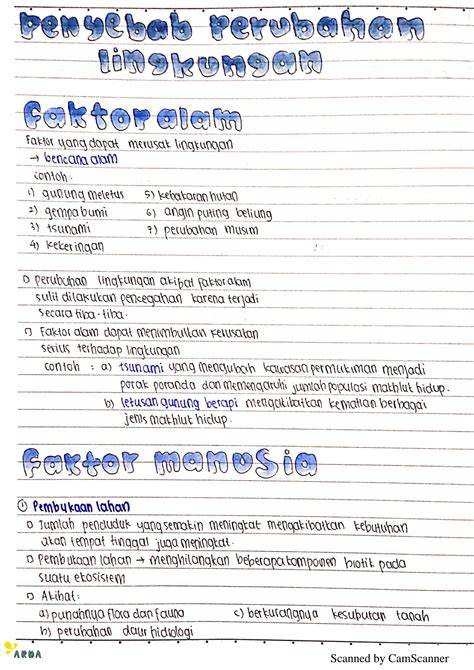 Penyebab perubahan
lingkungan
faktor alam
Faktor yang dapat merusak lingkungan
→ bencana alam
contoh :
1) gunung meletus 5) kebakaran hutan
2) gempa bumi 6) angin puting beliung
3) tsunami 7) perubahan musim
4) kekeringan
▢ perubahan lingkungan akibat faktor alam
sulit dilakukan pencegahan karena terjadi
secara tiba-tiba.
▢ Faktor alam dapat menimbulkan kerusakan
serius terhadap lingkungan
contoh : a) tsunami yang mengubah kawasan permukiman menjadi
porak poranda dan memengaruhi jumlah populasi makhluk hidup.
b) letusan gunung berapi mengakibatkan kematian berbagai
jenis makhluk hidup.
faktor manusia
① Pembukaan lahan
▢ Jumlah penduduk yang semakin meningkat mengakibatkan kebutuhan
akan tempat tinggal juga meningkat.
▢ Pembukaan lahan → menghilangkan beberapa komponen biotik pada
suatu ekosistem
▢ Akibat :
a) punahnya flora dan fauna c) berkurangnya kesuburan tanah
b) perubahan daur hidrologi
ARDA
Scanned by CamScanner